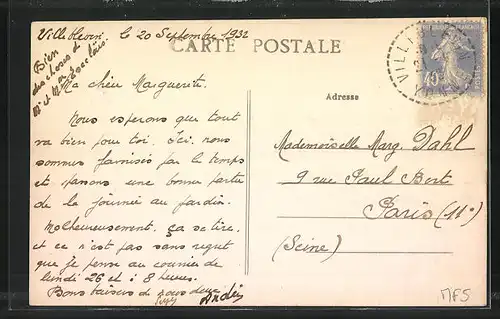 Villethierry le 20 Septembre 1932
CARTE POSTALE
Bien
des choses à
Mr et M
Ma chère Marguerite.
Adresse
Nous esperons que tout
va bien pour toi. Ici. nous
sommes favorisés par le temps
et passons une bonne partie
de la journée au jardin.
Malheureusement, ça se tire,
et ce n'est pas sans regret
que je pense au courrier de
lundi 26 et à 8 heures.
Bons baisers de nous deux
Andrée
Mademoiselle Marg. Dahl
9 rue Paul Bert
Paris (11e)
(Seine)
40
MFS